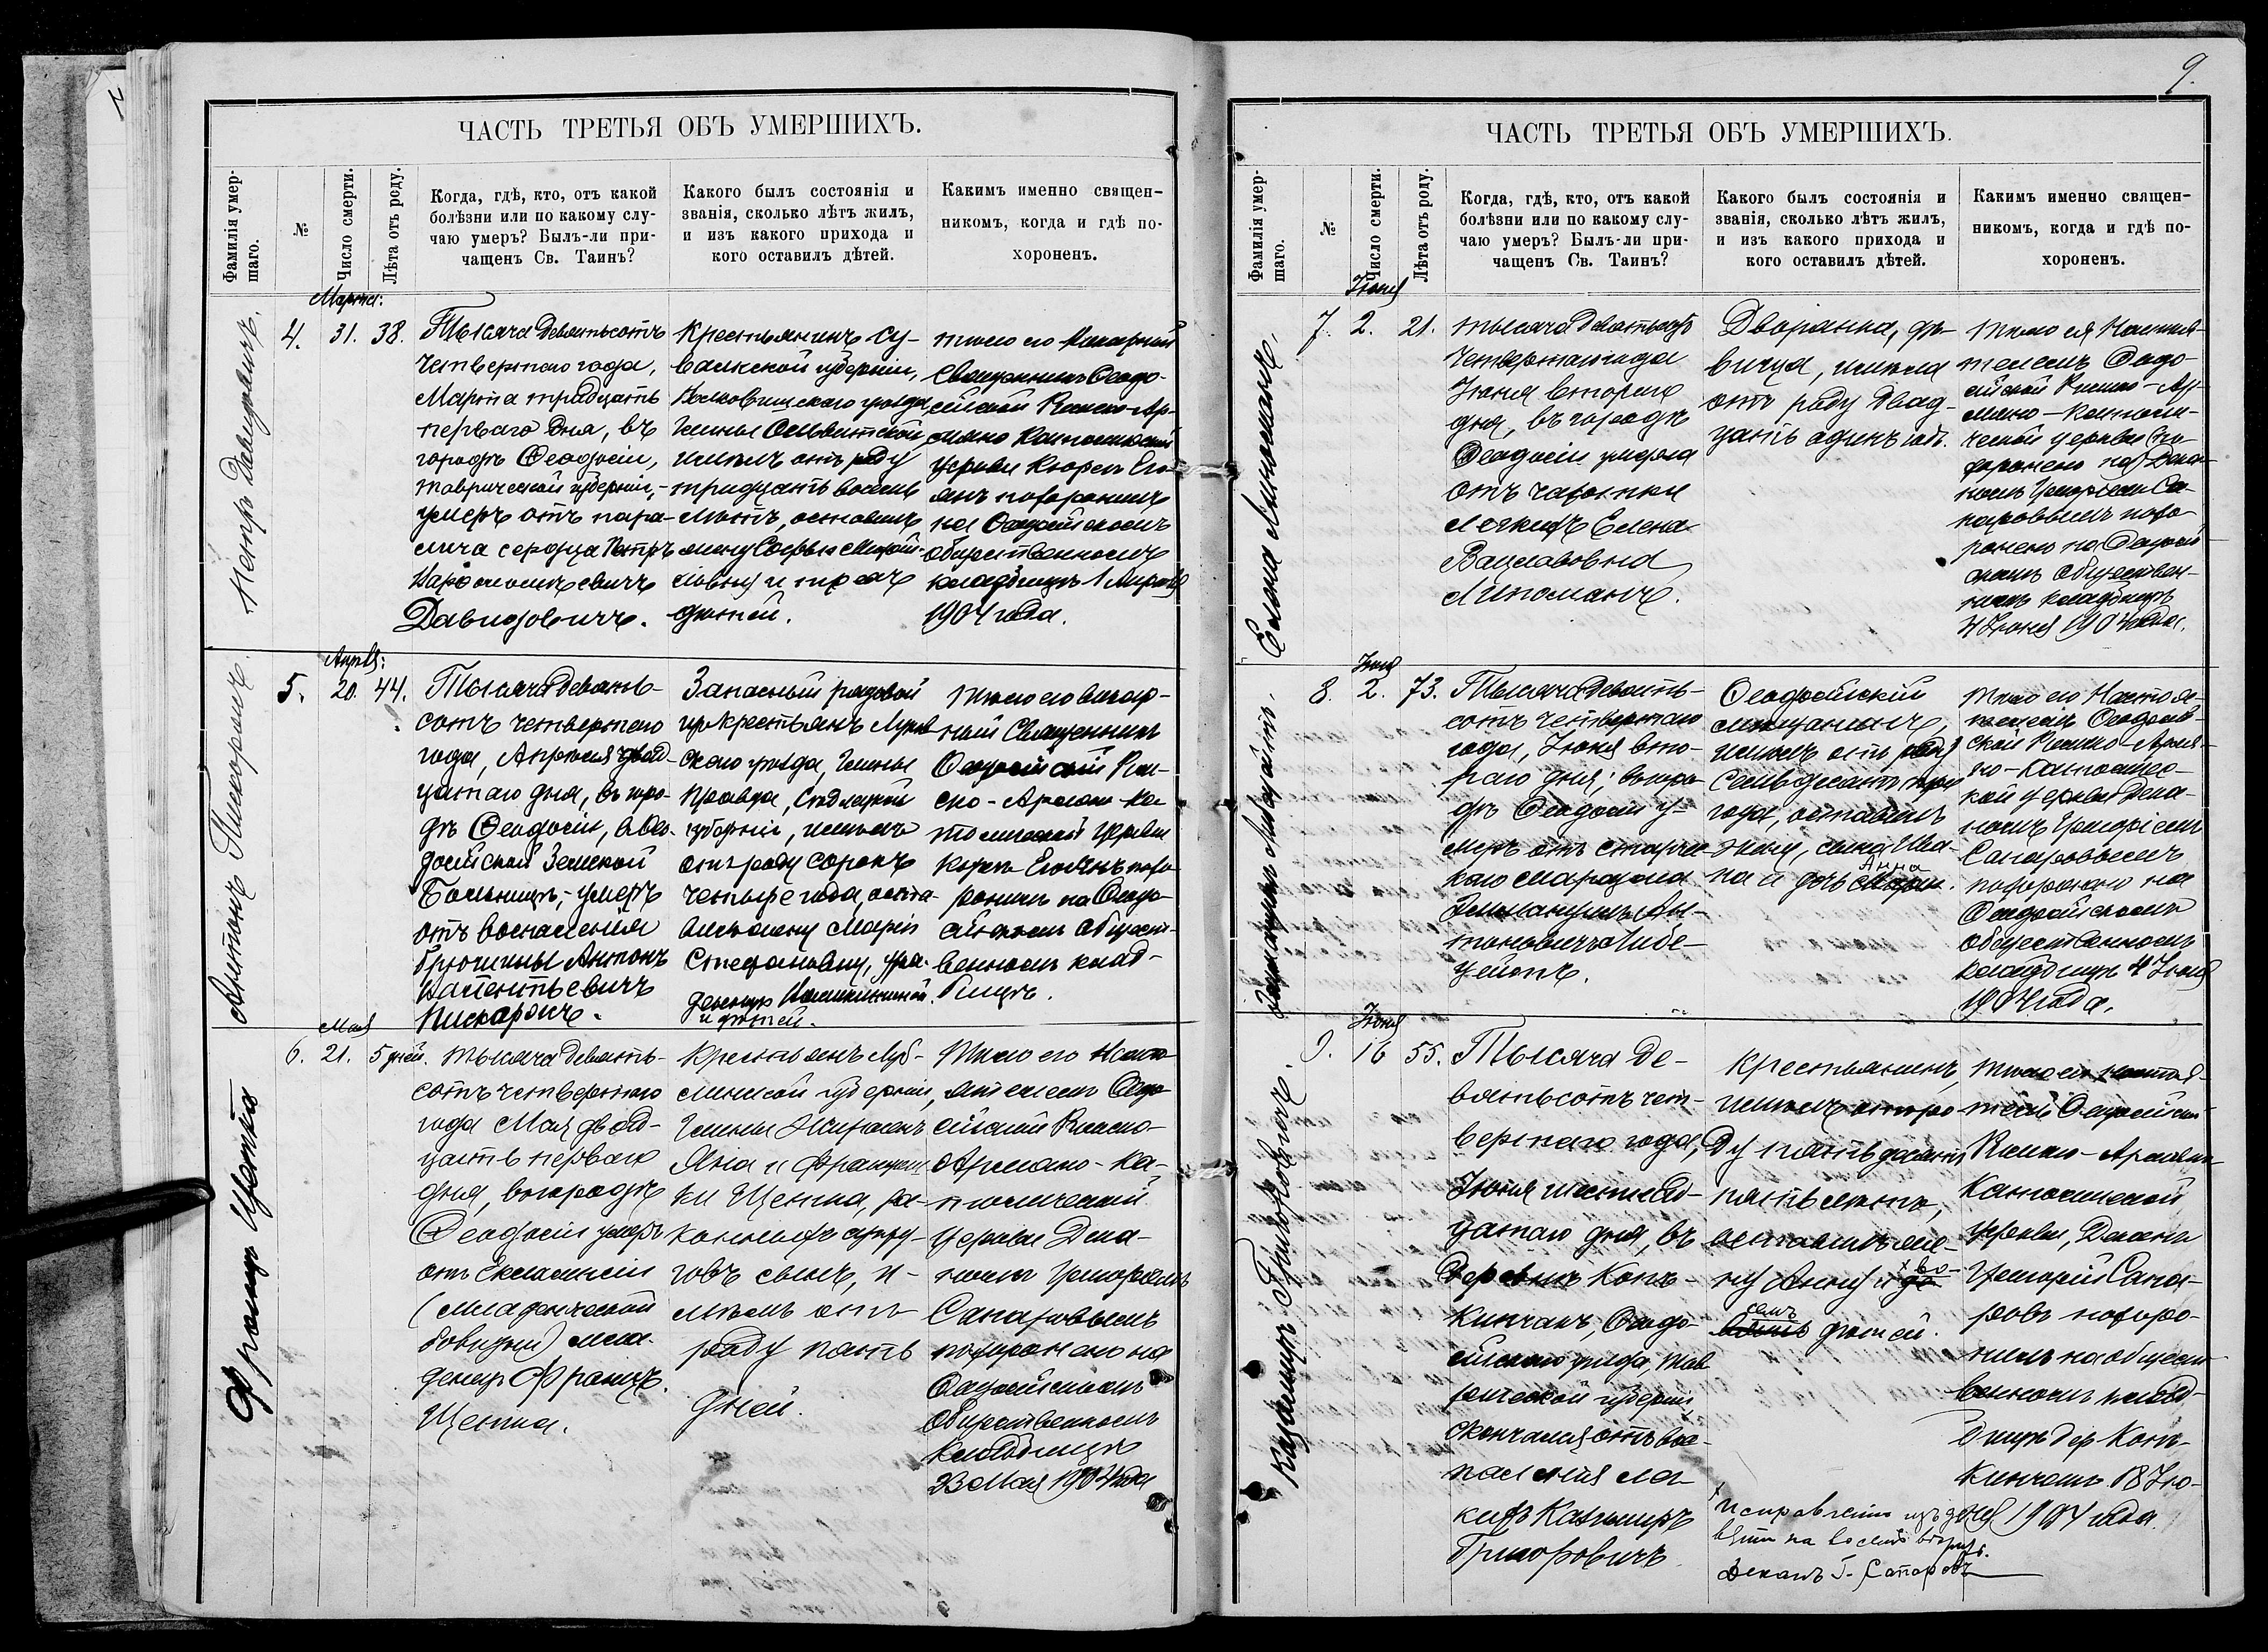 9.
ЧАСТЬ ТРЕТЬЯ ОБЪ УМЕРШИХЪ.
Фамилія умер-
шаго.
№
Число смерти.
Лѣта отъ роду.
Когда, гдѣ, кто, отъ какой
болѣзни или по какому слу-
чаю умеръ? Былъ-ли при-
чащенъ Св. Таинъ?
Какого былъ состоянія и
званія, сколько лѣтъ жилъ,
и изъ какого прихода и
кого оставилъ дѣтей.
Какимъ именно священ-
никомъ, когда и гдѣ по-
хороненъ.
Петръ Давидовичъ.
Марта:
4. 31. 38.
Тысяча девятьсотъ
четвертаго года,
Марта тридцать
перваго дня, въ
городѣ Ѳеодосіи,
Таврической губерніи,-
умеръ отъ пара-
лича сердца Петръ
Давидовичъ.
Крестьянинъ Су-
валкской губерніи,
Волковишскаго уѣзда,
гмины
жилъ отъ роду
тридцать восемь
лѣтъ, оставилъ
жену Софью
и троихъ
дѣтей.
тѣло его Викарный
Священникъ Ѳеодо-
сійской Римско-Ар-
мяно Католической
церкви Кюрегъ Его-
янъ похоронилъ
на Ѳеодосійскомъ
общественномъ
кладбищѣ 1 Апрѣля
1904 года.
Антонъ Пискорожъ.
Апрѣля:
5. 20. 44.
Тысяча девять-
сотъ четвертаго
года, Апрѣля двад-
цатаго дня, въ горо-
дѣ Ѳеодосіи, въ Ѳео-
досійской Земской
Больницѣ,- умеръ
отъ воспаленія
брюшины Антонъ
Запасный рядовой
изъ крестьянъ Луков-
скаго уѣзда, гмины
Сѣдлецкой
губерніи, жилъ
отъ роду сорокъ
четыре года, оста-
вилъ жену Марію
Степановну, уро-
жденную
и дѣтей.
Тѣло его викар-
ный Священникъ
Ѳеодосійской Рим-
ско-Армяно Ка-
толической Церкви
Кюрегъ Егоянъ похо-
ронилъ на Ѳеодо-
сійскомъ общест-
венномъ клад-
бищѣ.
Францъ Щепка
Мая
6. 21. 5 дней.
Тысяча девять-
сотъ четвертаго
года Мая двад-
цать перваго
дня, въ городѣ
Ѳеодосіи умеръ
отъ Екламисіи
(младенческой
болѣзни) мла-
денецъ Францъ
Щепка.
Крестьянъ Люб-
линской губерніи,
гмины
Яна и Францеш-
ки Щепка, за-
конныхъ супру-
говъ сынъ, жи-
лъ отъ
роду пять
дней.
Тѣло его Насто-
ятелемъ Ѳеодо-
сійской Римско-
Армяно-Ка-
толической
Церкви Дека-
номъ Григоріемъ
Сапаровымъ
похоронено на
Ѳеодосійскомъ
общественномъ
кладбищѣ
23 Мая 1904 года
ЧАСТЬ ТРЕТЬЯ ОБЪ УМЕРШИХЪ.
Фамилія умер-
шаго.
№
Число смерти.
Лѣта отъ роду.
Когда, гдѣ, кто, отъ какой
болѣзни или по какому слу-
чаю умеръ? Былъ-ли при-
чащенъ Св. Таинъ?
Какого былъ состоянія и
званія, сколько лѣтъ жилъ,
и изъ какого прихода и
кого оставилъ дѣтей.
Какимъ именно священ-
никомъ, когда и гдѣ по-
хороненъ.
Елена Липоманъ.
Іюня
7. 2. 21.
тысяча девятьсотъ
четвертаго года
Іюня второго
дня, въ городѣ
Ѳеодосіи умерла
отъ чахотки
легкихъ Елена
Вацлавовна
Липоманъ.
Дворянка, дѣ-
вица, жила
отъ роду двад-
цать одинъ годъ.
тѣло ея Настоя-
телемъ Ѳеодо-
сійской Римско-Ар-
мяно-Католи-
ческой церкви
Дека-
номъ Григоріемъ Са-
паровымъ похо-
ронено на Ѳеодосій-
скомъ обществен-
номъ кладбищѣ
4 Іюня 1904 года.
Іюня
8. 2. 73.
Тысяча девять-
сотъ четвертаго
года, Іюня вто-
раго дня, въ горо-
дѣ Ѳеодосіи у-
меръ отъ старчес-
каго маразма
Эммануилъ Ан-
тоновичъ
Ѳеодосійскій
мѣщанинъ,
жилъ отъ роду
семьдесятъ три
года, оставилъ
жену, сына Ива-
на и дочь
Анна
Тѣло его Настоя-
телемъ Ѳеодосій-
ской Римско-Армя-
но-Католичес-
кой церкви Дека-
номъ Григоріемъ
Сапаровымъ
похоронено на
Ѳеодосійскомъ
общественномъ
кладбищѣ 4 Іюня
1904 года.
Казимиръ Григоровичъ.
Іюня
9. 16 55.
Тысяча де-
вятьсотъ чет-
вертаго года,
Іюня шестнад-
цатаго дня, въ
деревнѣ Копъ-
Кипчакъ, Ѳеодо-
сійскаго уѣзда, Тав-
рической губерніи,
скончался отъ вос-
паленія лег-
кихъ Казимиръ
Григоровичъ
Крестьянинъ,
жилъ отъ ро-
ду пятьдесятъ
пять лѣтъ,
оставилъ же-
ну Анну и во-
семь дѣтей.
исправлено изъ де-
вяти на восемь вѣрно.
Деканъ Г. Сапаровъ
Тѣло его настоя-
тель Ѳеодосійской
Римско-Армяно
Католической
церкви, Деканъ
Григорій Сапа-
ровъ похоро-
нилъ на общест-
венномъ клад-
бищѣ дер. Копъ-
Кипчакъ 18 Ію-
ня 1904 года.